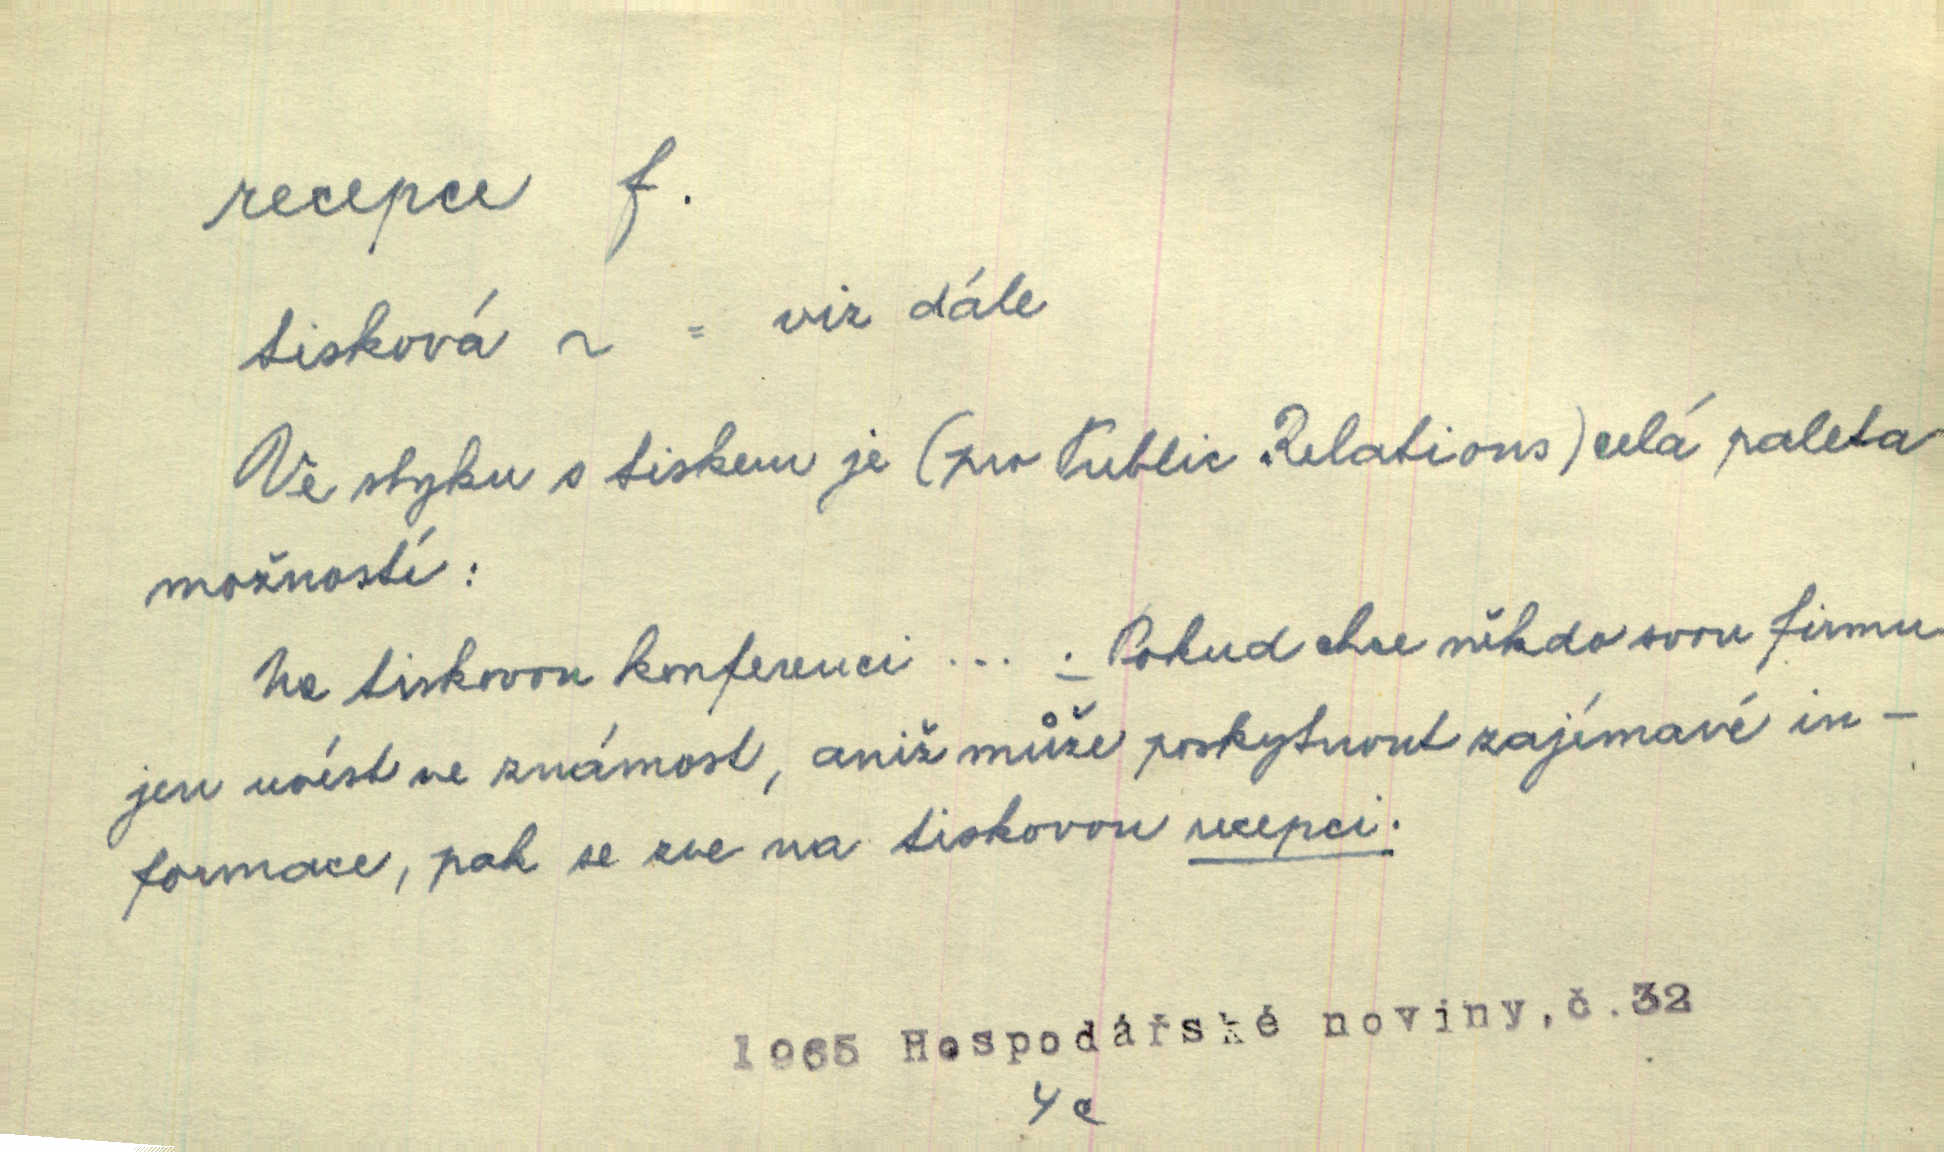 recepce f.
tisková ~ = viz dále
Ve styku s tiskem je (pro Public Relations) celá paleta
možností:
Na tiskovou konferenci ... . Pokud chce někdo svou firmu
jen uvést ve známost, aniž může poskytnout zajímavé in-
formace, pak se zve na tiskovou recepci.
1965 Hospodářské noviny, č. 32
4c